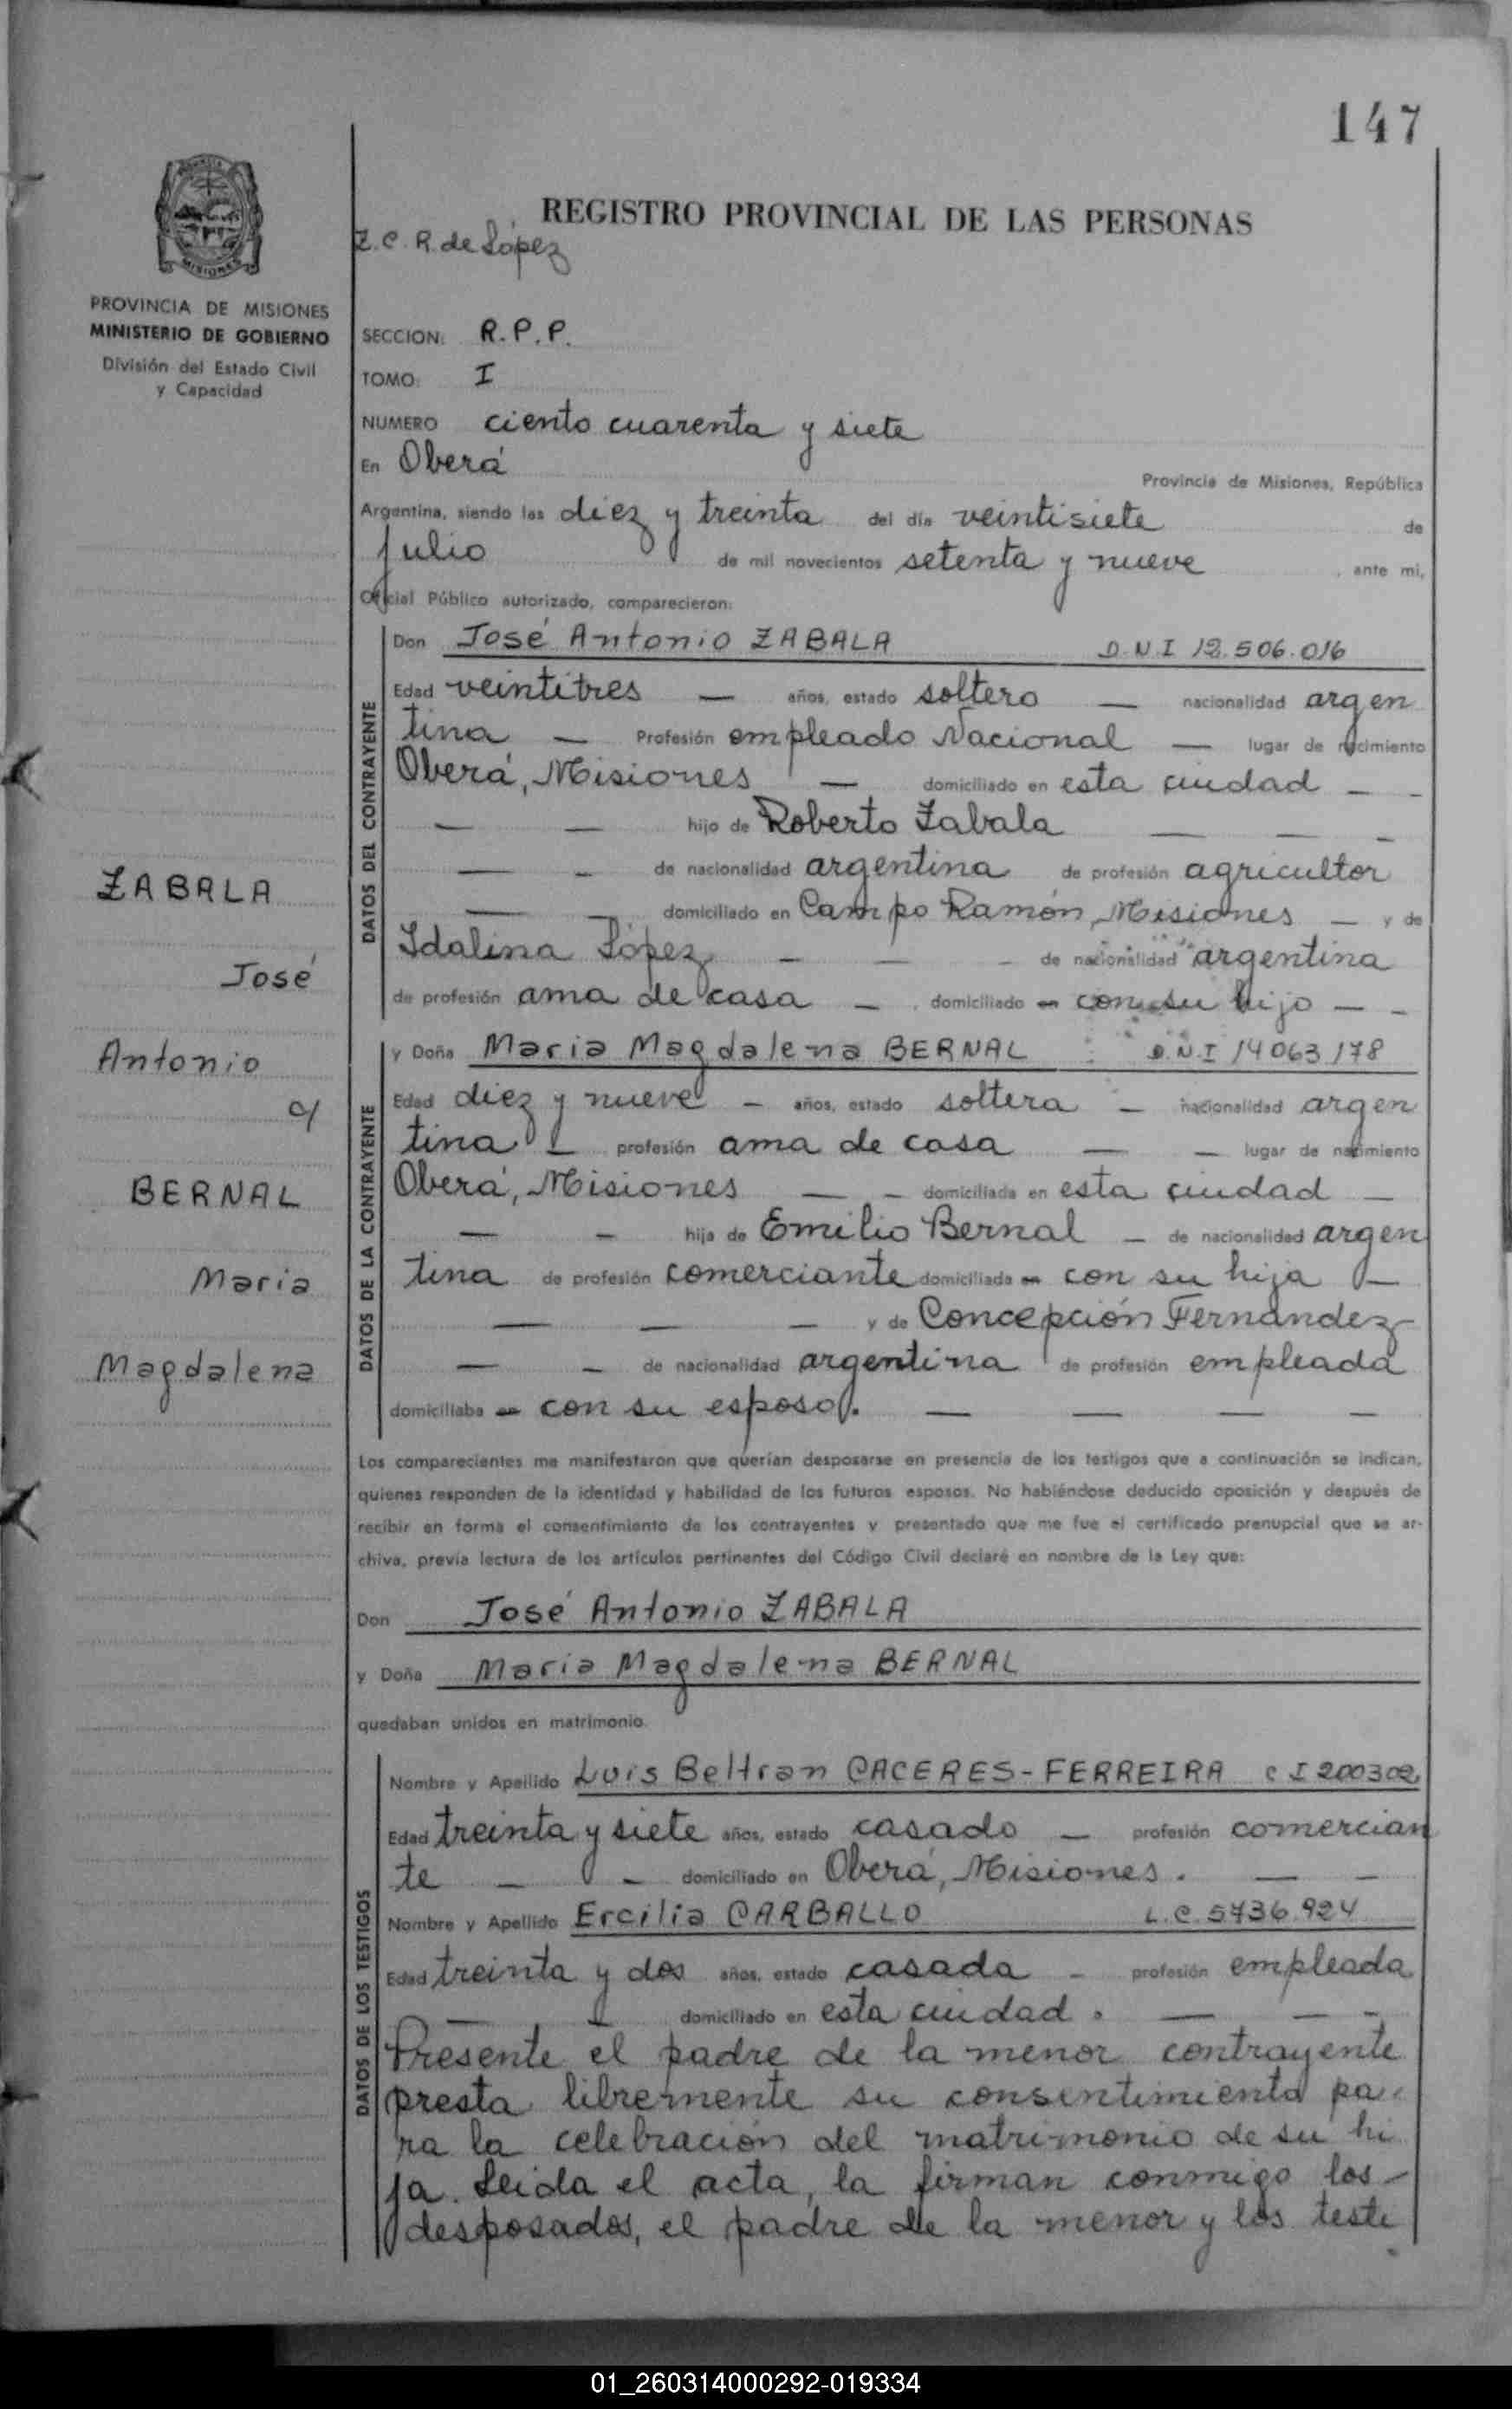 147
REGISTRO PROVINCIAL DE LAS PERSONAS
Z. C. R. de López
MISIONES
PROVINCIA DE MISIONES
MINISTERIO DE GOBIERNO
División del Estado Civil
y Capacidad
SECCION: R.P.P.
TOMO: I
NUMERO ciento cuarenta y siete
En Oberá
Provincia de Misiones, República
Argentina, siendo las diez y treinta del día veintisiete de
julio de mil novecientos setenta y nueve, ante mi,
Oficial Público autorizado, comparecieron:
DATOS DEL CONTRAYENTE
Don José Antonio ZABALA D.N.I 12.506.016
Edad veintitres — años, estado soltero — nacionalidad argen
tina — Profesión empleado Nacional — lugar de nacimiento
Oberá, Misiones — domiciliado en esta ciudad — —
— — hijo de Roberto Zabala — — —
— — de nacionalidad argentina de profesión agricultor
— — domiciliado en Campo Ramón, Misiones — y de
Idalina López — — — de nacionalidad argentina
de profesión ama de casa — domiciliado en con su hijo — —
ZABALA
José
Antonio
y
BERNAL
Maria
Magdalena
DATOS DE LA CONTRAYENTE
y Doña Maria Magdalena BERNAL D.N.I 14063178
Edad diez y nueve — años, estado soltera — nacionalidad argen
tina — profesión ama de casa — — lugar de nacimiento
Oberá, Misiones — — domiciliada en esta ciudad —
— — hija de Emilio Bernal — de nacionalidad argen
tina de profesión comerciante domiciliada en con su hija —
— — — y de Concepción Fernández
— — de nacionalidad argentina de profesión empleada
domiciliaba en con su esposo. — — — —
Los comparecientes me manifestaron que querían desposarse en presencia de los testigos que a continuación se indican,
quienes responden de la identidad y habilidad de los futuros esposos. No habiéndose deducido oposición y después de
recibir en forma el consentimiento de los contrayentes y presentado que me fue el certificado prenupcial que se ar-
chiva, previa lectura de los artículos pertinentes del Código Civil declaré en nombre de la Ley que:
Don José Antonio ZABALA
y Doña Maria Magdalena BERNAL
quedaban unidos en matrimonio.
DATOS DE LOS TESTIGOS
Nombre y Apellido Luis Beltran CACERES-FERREIRA C I 200302
Edad treinta y siete años, estado casado — profesión comercian
te — — domiciliado en Oberá, Misiones. — —
Nombre y Apellido Ercilia CARBALLO L.C. 5436.924
Edad treinta y dos años, estado casada — profesión empleada
— — domiciliado en esta ciudad. — — —
Presente el padre de la menor contrayente
presta libremente su consentimiento pa-
ra la celebración del matrimonio de su hi
ja. Leida el acta, la firman conmigo los
desposados, el padre de la menor y los testi
01_260314000292-019334